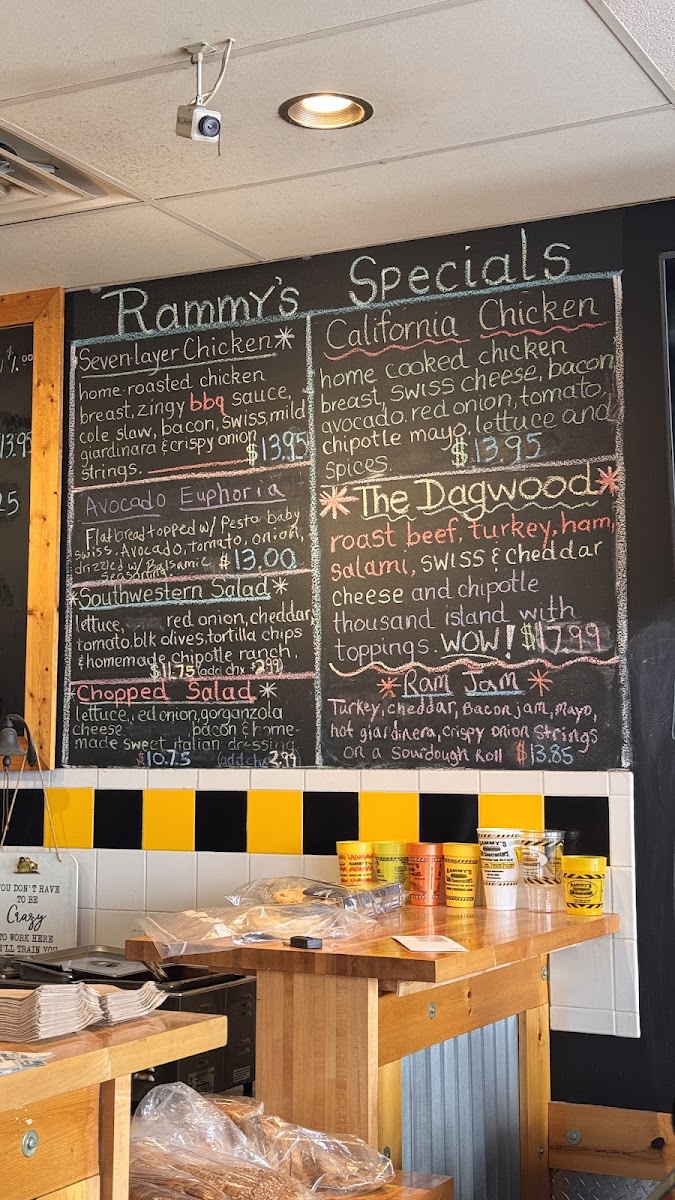 Rammy's Specials
Seven-layer Chicken*
home-roasted chicken
breast, zingy bbq sauce,
cole slaw, bacon, swiss, mild
giardinara & crispy onion
strings. $13.95
Avocado Euphoria
Flatbread topped w/ Pesto baby
swiss, Avocado, tomato, onion,
drizzled w/ Balsamic $13.00
seasoning
*Southwestern Salad*
lettuce, red onion, cheddar,
tomato, blk olives, tortilla chips
& homemade chipotle ranch.
$11.75 (add chx 2.99)
Chopped Salad*
lettuce, red onion, gorganzola
cheese bacon & home-
made sweet italian dressing
$10.75 (add chx 2.99
California Chicken
home cooked chicken
breast, swiss cheese, bacon,
avocado, red onion, tomato,
chipotle mayo, lettuce and
spices. $13.95
*The Dagwood*
roast beef, turkey, ham,
salami, swiss & cheddar
cheese and chipotle
thousand island with
toppings. WOW! $17.99
*Ram Jam*
Turkey, cheddar, Bacon jam, Mayo,
hot giardinera, crispy onion strings
on a Sourdough Roll $13.85
$1.00
13.95
25
YOU DON'T HAVE
TO BE
Crazy
TO WORK HERE
WE'LL TRAIN YOU
RAMMY'S
RAMMY'S
RAMMY'S